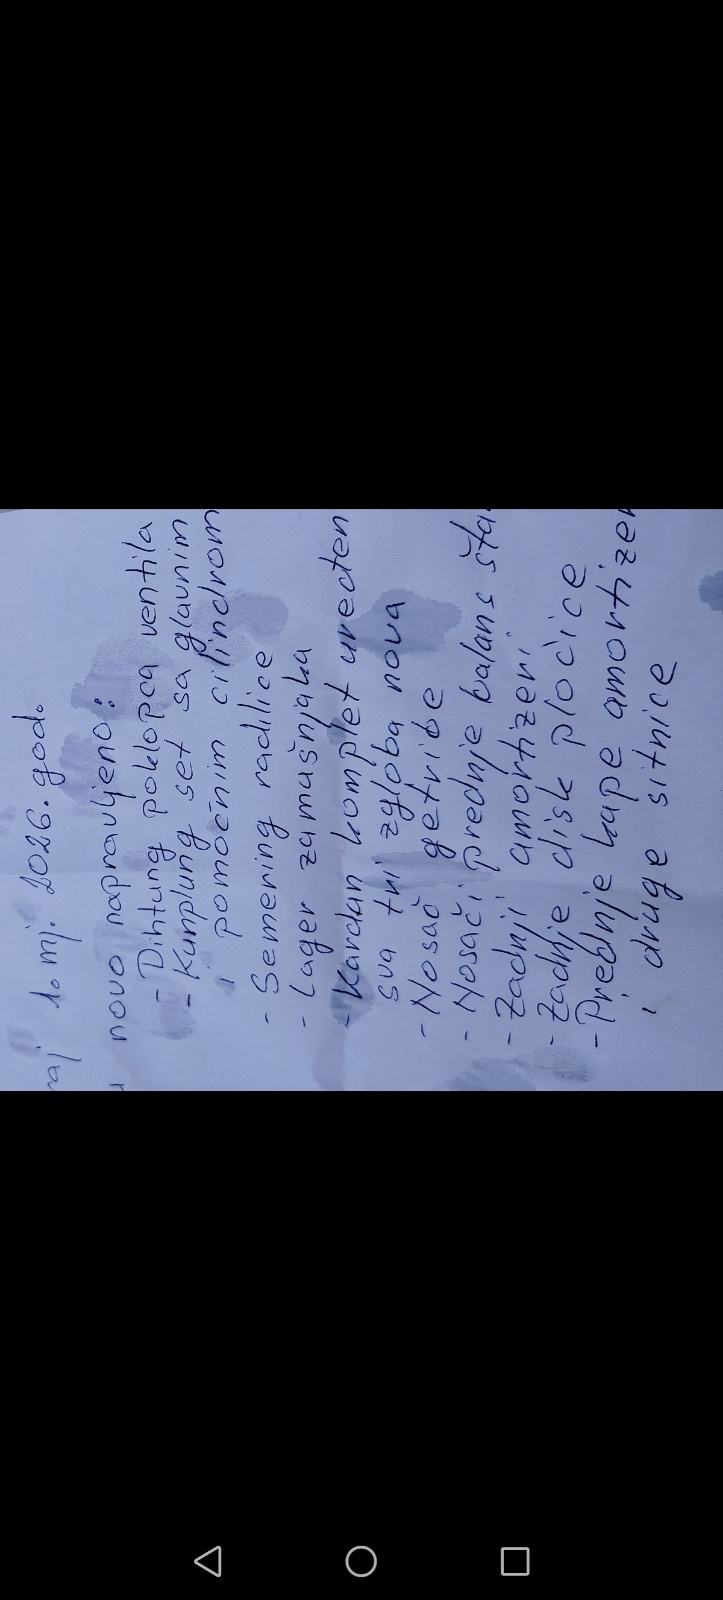 1. mj. 2026. god.
novo napravljeno:
- Dihtung poklopca ventila
- Kumplung set sa glavnim
i pomoćnim cilindrom
- Semering radilice
- Lager zamašnjaka
- Kardan komplet uređen
sva tri zgloba nova
- Nosač getribe
- Nosači prednje balans šta
- Zadnji amortizeri
- Zadnje disk pločice
- Prednje kape amortizer
i druge sitnice